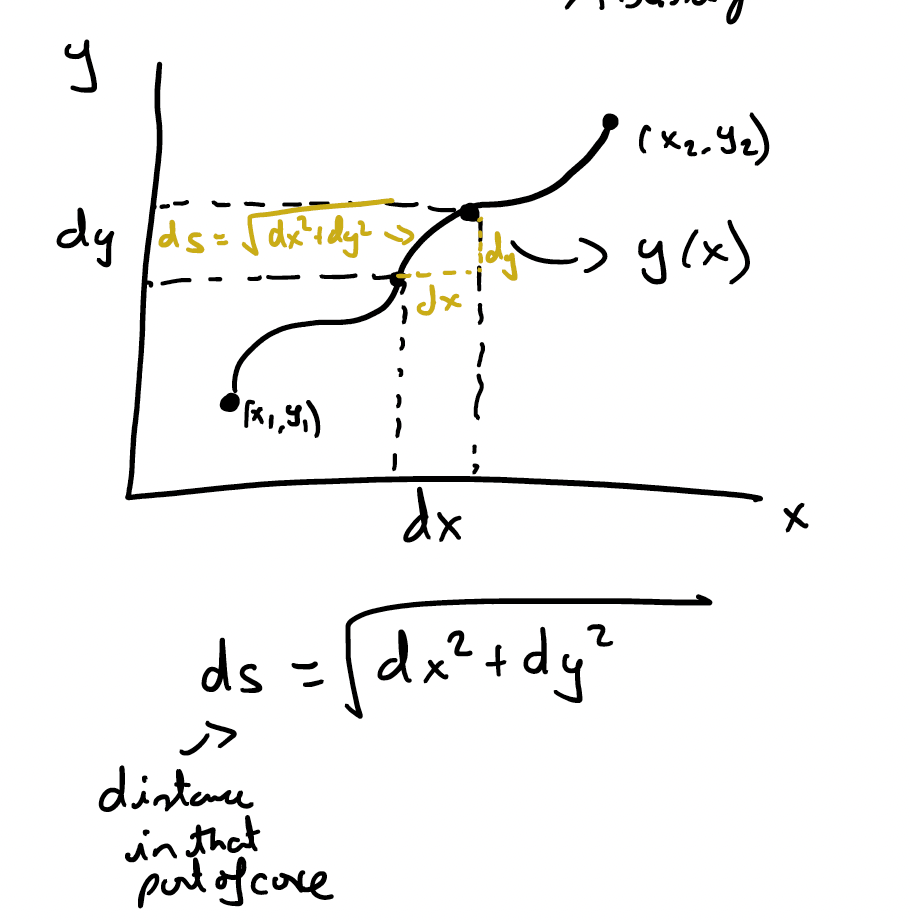 y
(x₂, y₂)
dy
ds = √dx²+dy²
dy
y(x)
dx
(x₁, y₁)
dx
x
ds = √dx² + dy²
distance
in that
part of